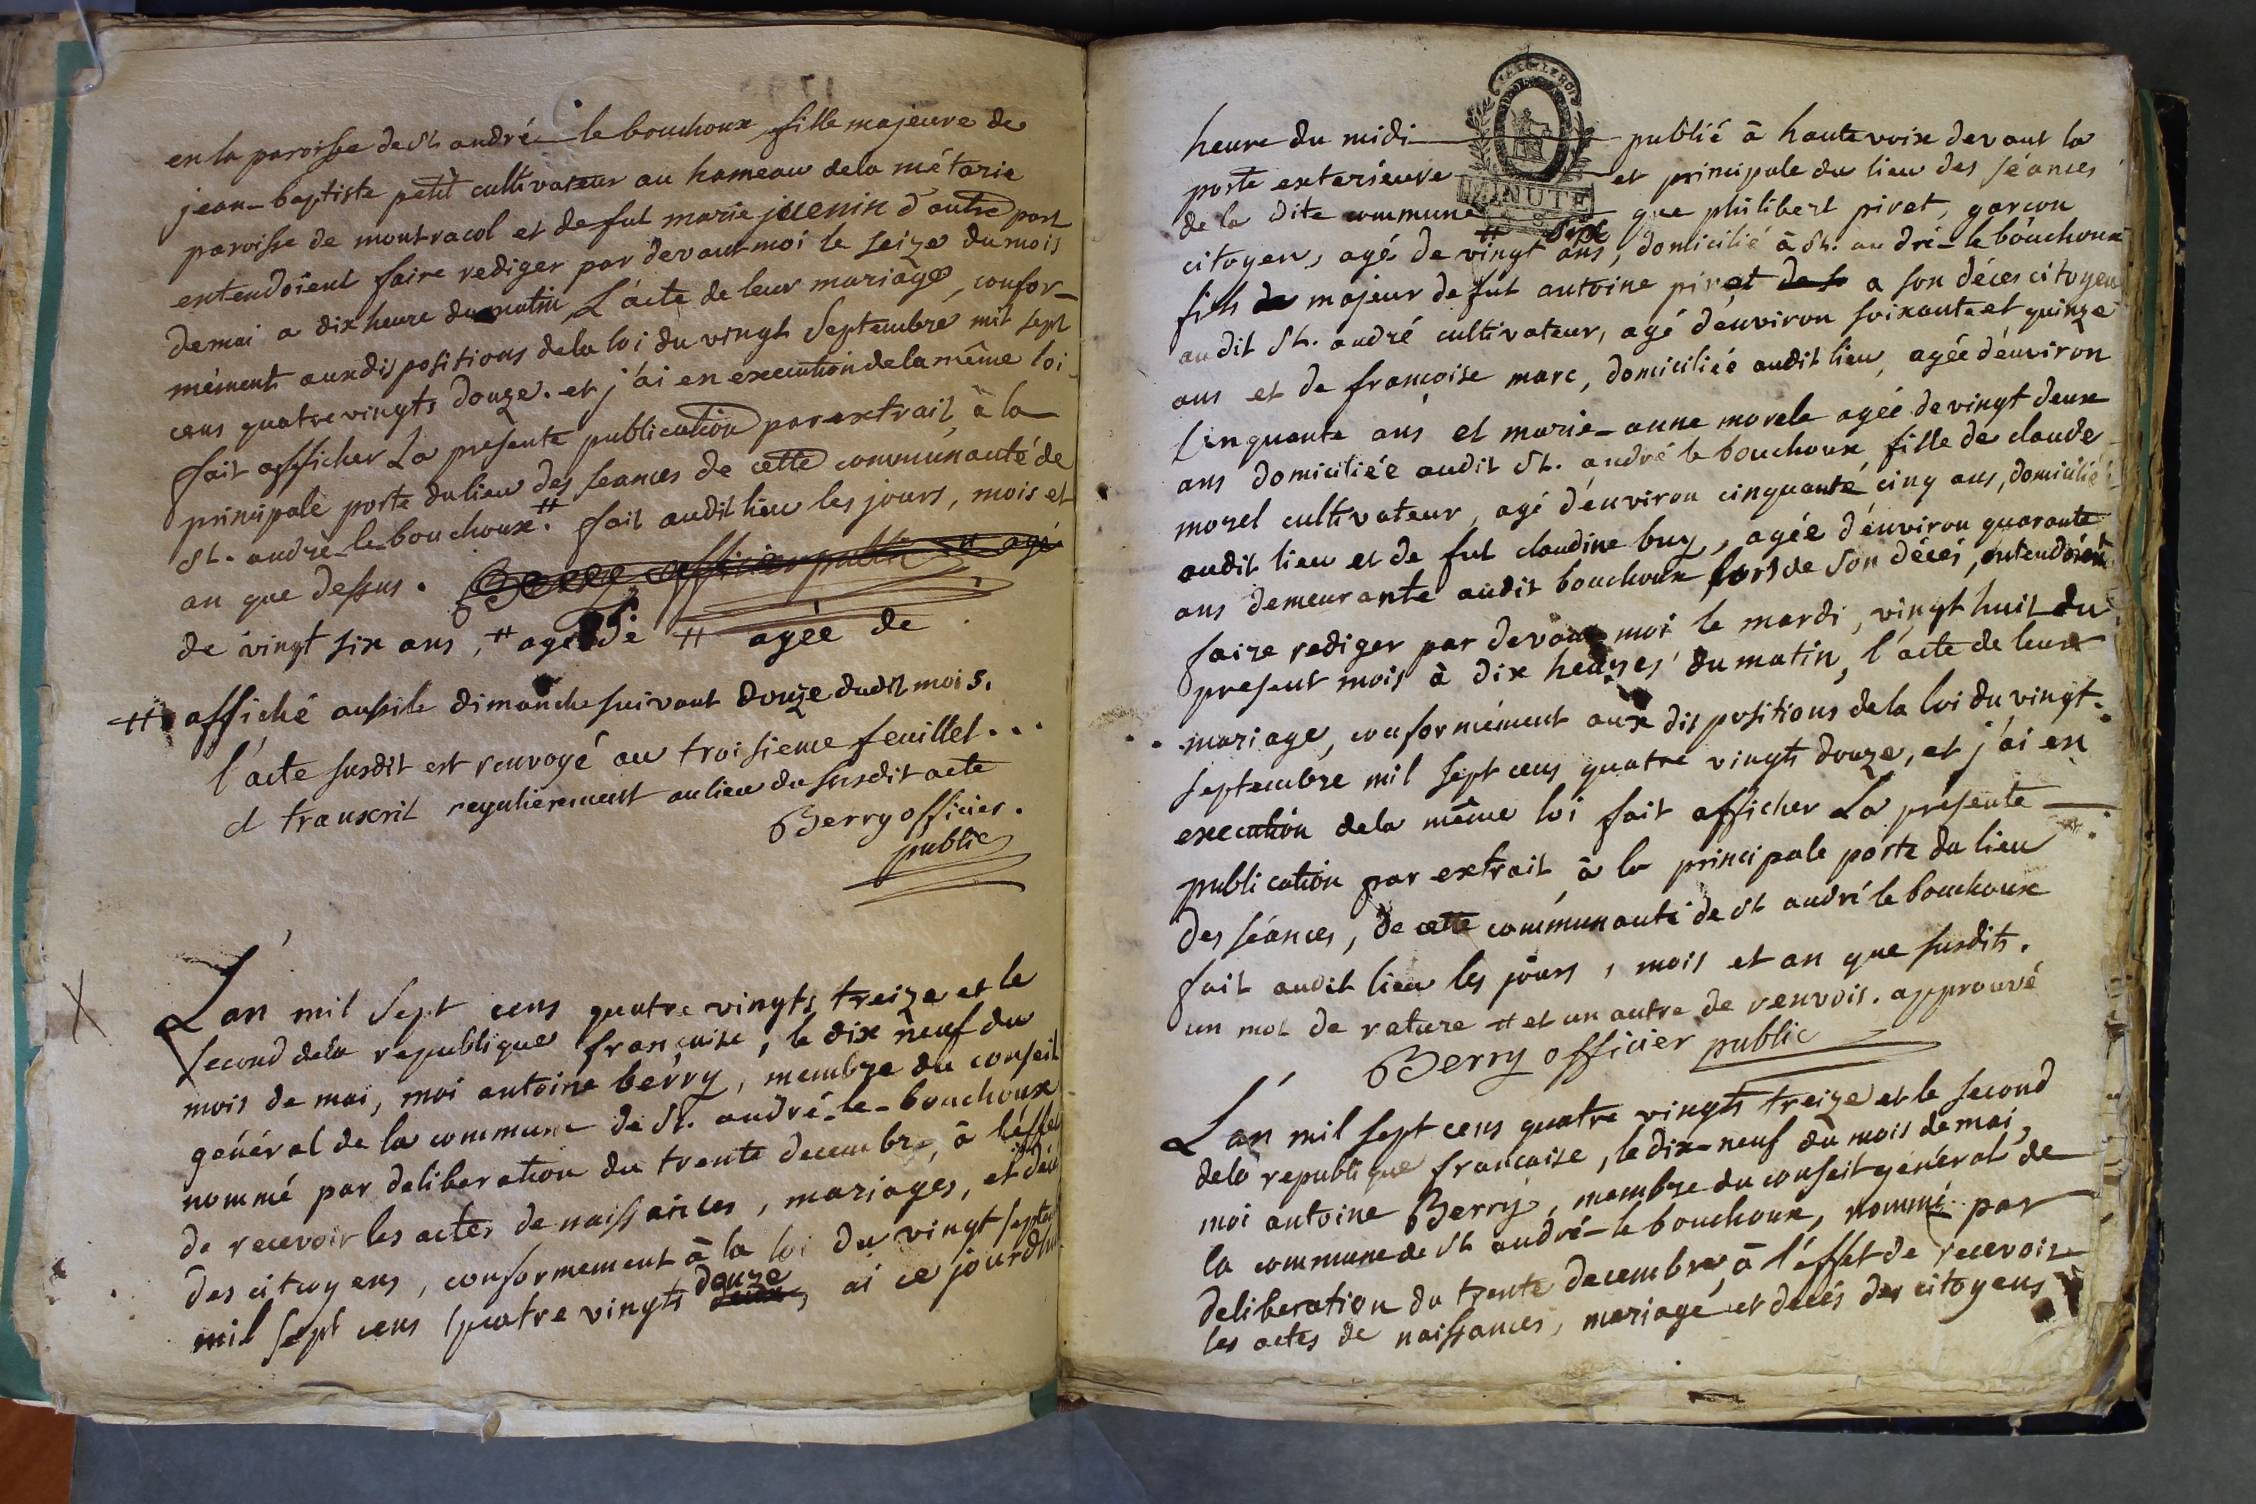 en la paroisse de St. andré le bouchoux fille majeure de
jean-baptiste petit cultivateur au hameau dela métarie
paroisse de montracol et de fut marie juenin d'autre part
entendoient faire rediger par devant moi le seize du mois
demai a dix heure du matin, L'acte de leur mariage, confor-
mément aux dispositions dela loi du vingt Septembre mil sept
cens quatre vingts douze. et j'ai en execution dela même loi
fait afficher La presente publication par extrait, à la
principale porte du lieu des seances de cette communauté de
St. andré-le-bouchoux.# fait audit lieu les jours, mois et
an que dessus. Berry officier public agé
de vingt six ans, # agé de # agée de
# affiché aussi le dimanche suivant douze dudit mois.
l'acte susdit est renvoyé au troisieme feuillet...
et transcrit regulierement au lieu du susdit acte
Berry officier.
public
X
L'an mil Sept cens quatre vingts treize et le
second dela republique française, le dix neuf du
mois de mai, moi antoine berry, membre du conseil
général de la commune de St. andré-le-bouchoux
nommé par deliberation du trente decembre, à l'effet
de recevoir les actes de naissances, mariages, et déc
des citoyens, conformement à la loi du vingt septem
mil sept cens quatre vingts douze, ai ce jourdhui
heure du midi publié à haute voix devant la
porte exterieure et principale du lieu des séances
de la dite commune que philibert piret, garçon
MINUTE
# six
citoyen, agé de vingt ans, domicilié à St. andré-le bouchoux
fils de majeur de fut antoine piret de s a son déces citoyen
audit St. andré cultivateur, agé d'environ soixante et quinze
ans et de françoise marc, domiciliée audit lieu, agée d'environ
Cinquante ans et marie-anne morele agée de vingt deux
ans domiciliée audit St. andré le bouchoux, fille de claude
morel cultivateur, agé d'environ cinquante cinq ans, domicilié
audit lieu et de fut claudine buy, agée d'environ quarante
ans demeurante audit bouchoux lors de son décés, entendoient
faire rediger par devant moi le mardi, vingt huit du
present mois à dix heures du matin, l'acte de leur
mariage, conformément aux dispositions dela loi du vingt
septembre mil sept cens quatre vingts douze, et j'ai en
execution dela même loi fait afficher La presente
publication par extrait à la principale porte du lieu
des séances, de cette communauté de St andré le bouchoux
fait audit lieu les jours, mois et an que susdits.
un mot de rature # et un autre de renvois. approuvé
Berry officier public
L'an mil sept cens quatre vingts treize et le second
dela republique française, le dix-neuf du mois de mai,
moi antoine Berry, membre du conseil général de
la commune de St andré-le bouchoux, nommé par
deliberation du trente decembre, à l'effet de recevoir
les actes de naissances, mariage et decés des citoyens